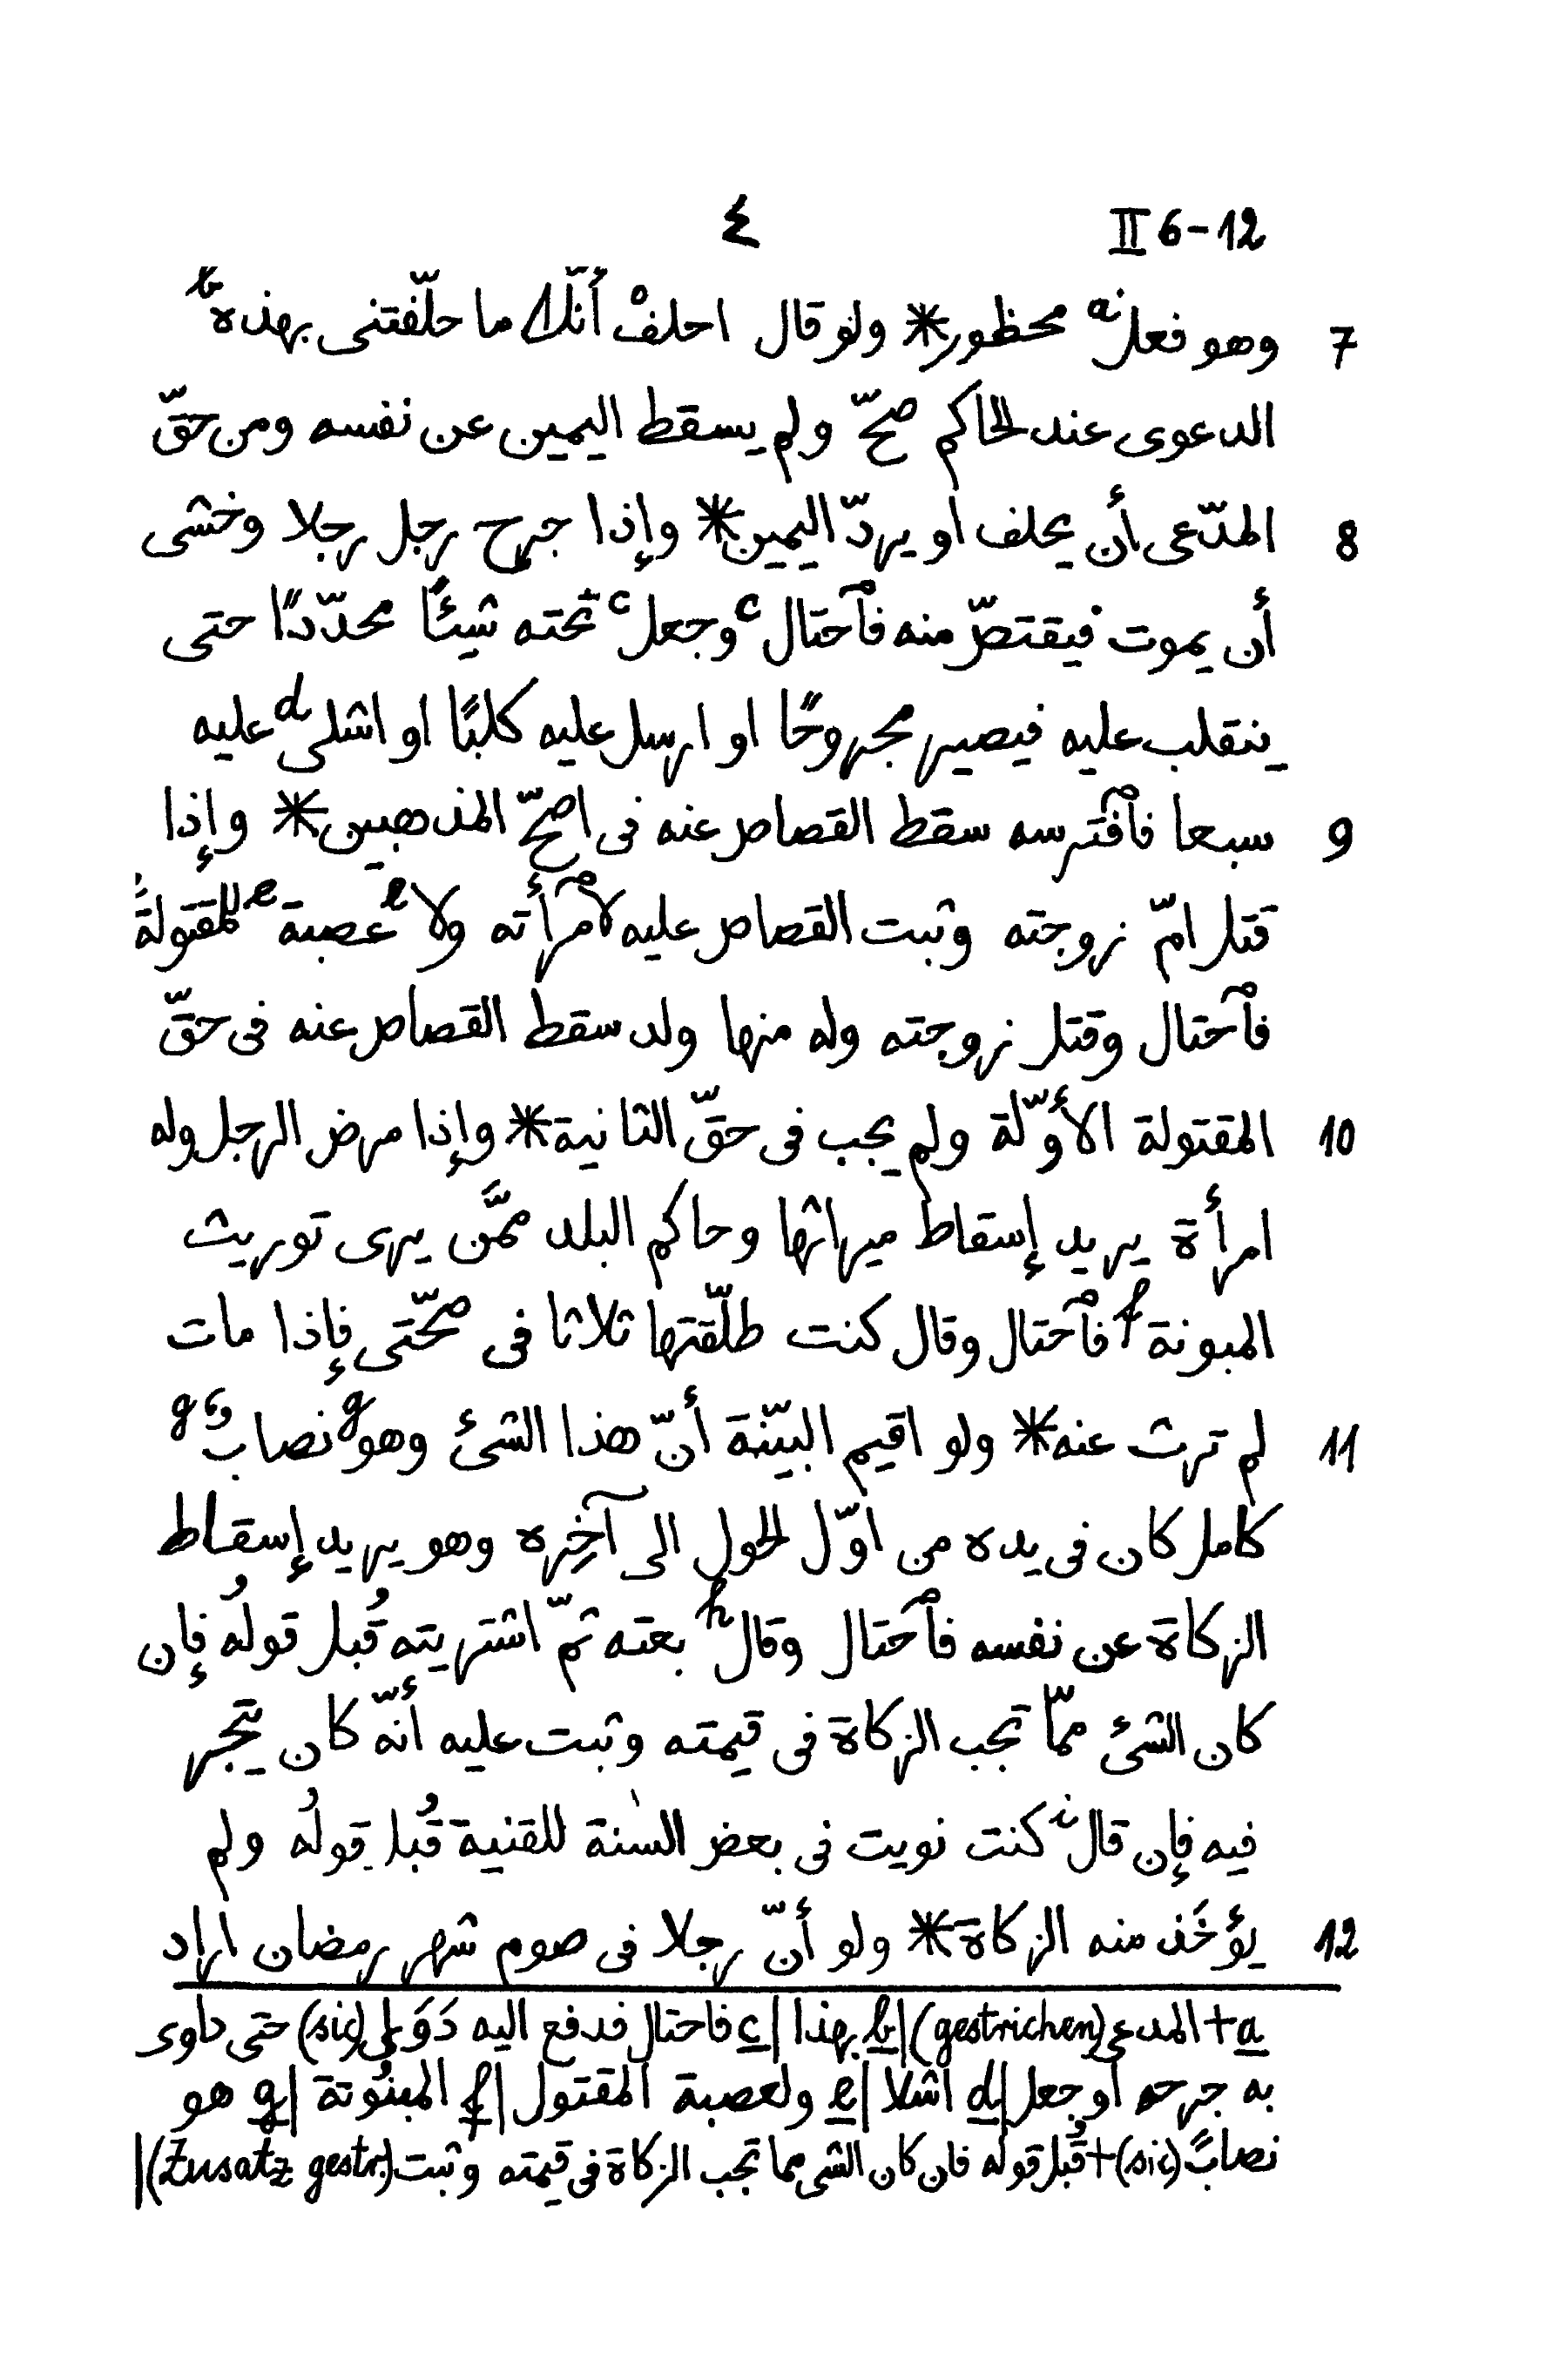 II 6-12 ٤
7 وهو فعل a محظور* ولو قال احلفْ أنّك ما حلّفتنى بهذه b
الدعوى عند الحاكم صحّ ولم يسقط اليمين عن نفسه ومن حقّ
8 المدّعى أن يحلف او يردّ اليمين* وإذا جرح رجل رجلا وخشى
أن يموت فيقتصّ منه فٱحتال c وجعل c تحته شيئًا محدّدًا حتى
ينقلب عليه فيصير مجروحًا او ارسل عليه كلبًا او اشلى d عليه
9 سبعا فٱفترسه سقط القصاص عنه فى اصحّ المذهبين* وإذا
قتل امّ زوجته وثبت القصاص عليه لٱمرأته ولا e عصبة e للمقتولة
فٱحتال وقتل زوجته وله منها ولد سقط القصاص عنه فى حقّ
10 المقتولة الأوّلة ولم يجب فى حقّ الثانية* وإذا مرض الرجل وله
امرأة يريد إسقاط ميراثها وحاكم البلد ممَّن يرى توريث
المبونة f فٱحتال وقال كنت طلّقتها ثلاثا فى صحّتى فإذا مات
11 لم ترث عنه* ولو اقيم البيّنة أنّ هذا الشئ وهو g نصابٌ g
كامل كان فى يده من اوّل الحول الى آخِره وهو يريد إسقاط
الزكاة عن نفسه فٱحتال وقال h بعته ثمّ اشتريته قُبل قولُه فإن
كان الشئ ممّا تجب الزكاة فى قيمته وثبت عليه أنّه كان يتجر
فيه فإن قال i كنت نويت فى بعض السنة للقنية قُبل قولُه ولم
12 يؤخَذ منه الزكاة* ولو أنّ رجلا فى صوم شهر رمضان اراد
a + المدعى (gestrichen) | b بهذا | c فاحتال فدفع اليه (sic) حتى داوى
به جرحه او جعل | d اشلا | e ولعصبة المقتول | f المبنُوتة | g هو
نصابً (sic) + قُبل قوله فان كان الشى مما تجب الزكاة فى قيمته وثبت (Zusatz gestr.) |